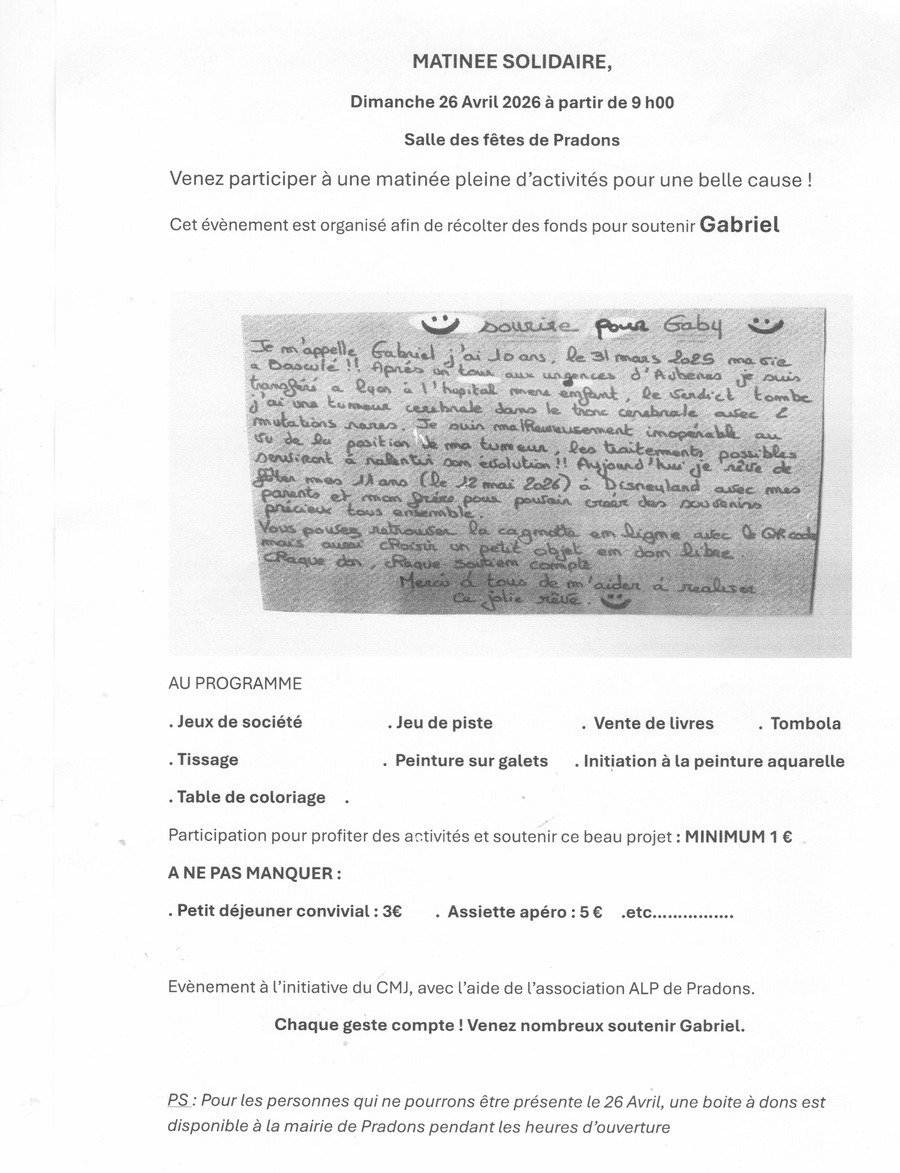 MATINEE SOLIDAIRE,
Dimanche 26 Avril 2026 à partir de 9 h00
Salle des fêtes de Pradons
Venez participer à une matinée pleine d'activités pour une belle cause !
Cet évènement est organisé afin de récolter des fonds pour soutenir Gabriel
sourire pour Gaby
Je m'appelle Gabriel j'ai 10 ans, le 31 mars 2025 ma vie
a Basculé !! Après un tour aux urgences d'Aubenas je suis
transféré a lyon à l'hopital mere enfant, le verdict tombe
j'ai une tumeur cerebrale dans le tronc cerebrale avec 2
mutations rares. Je suis malheureusement inopérable au
vu de la position de ma tumeur, les traitements possibles
serviront à ralentir son évolution !! Aujourd'hui je rêve de
fêter mes 11 ans (le 12 mai 2026) à Disneyland avec mes
parents et mon frère pour pouvoir créer des souvenirs
précieux tous ensemble.
Vous pouvez retrouver la cagnotte en ligne avec le QR code
mais aussi choisir un petit objet en don libre.
Chaque don, chaque soutien compte
Merci à tous de m'aider à realiser
ce jolie rêve.
AU PROGRAMME
. Jeux de société . Jeu de piste . Vente de livres . Tombola
. Tissage . Peinture sur galets . Initiation à la peinture aquarelle
. Table de coloriage .
Participation pour profiter des activités et soutenir ce beau projet : MINIMUM 1 €
A NE PAS MANQUER :
. Petit déjeuner convivial : 3€ . Assiette apéro : 5 € .etc................
Evènement à l'initiative du CMJ, avec l'aide de l'association ALP de Pradons.
Chaque geste compte ! Venez nombreux soutenir Gabriel.
PS : Pour les personnes qui ne pourrons être présente le 26 Avril, une boite à dons est
disponible à la mairie de Pradons pendant les heures d'ouverture